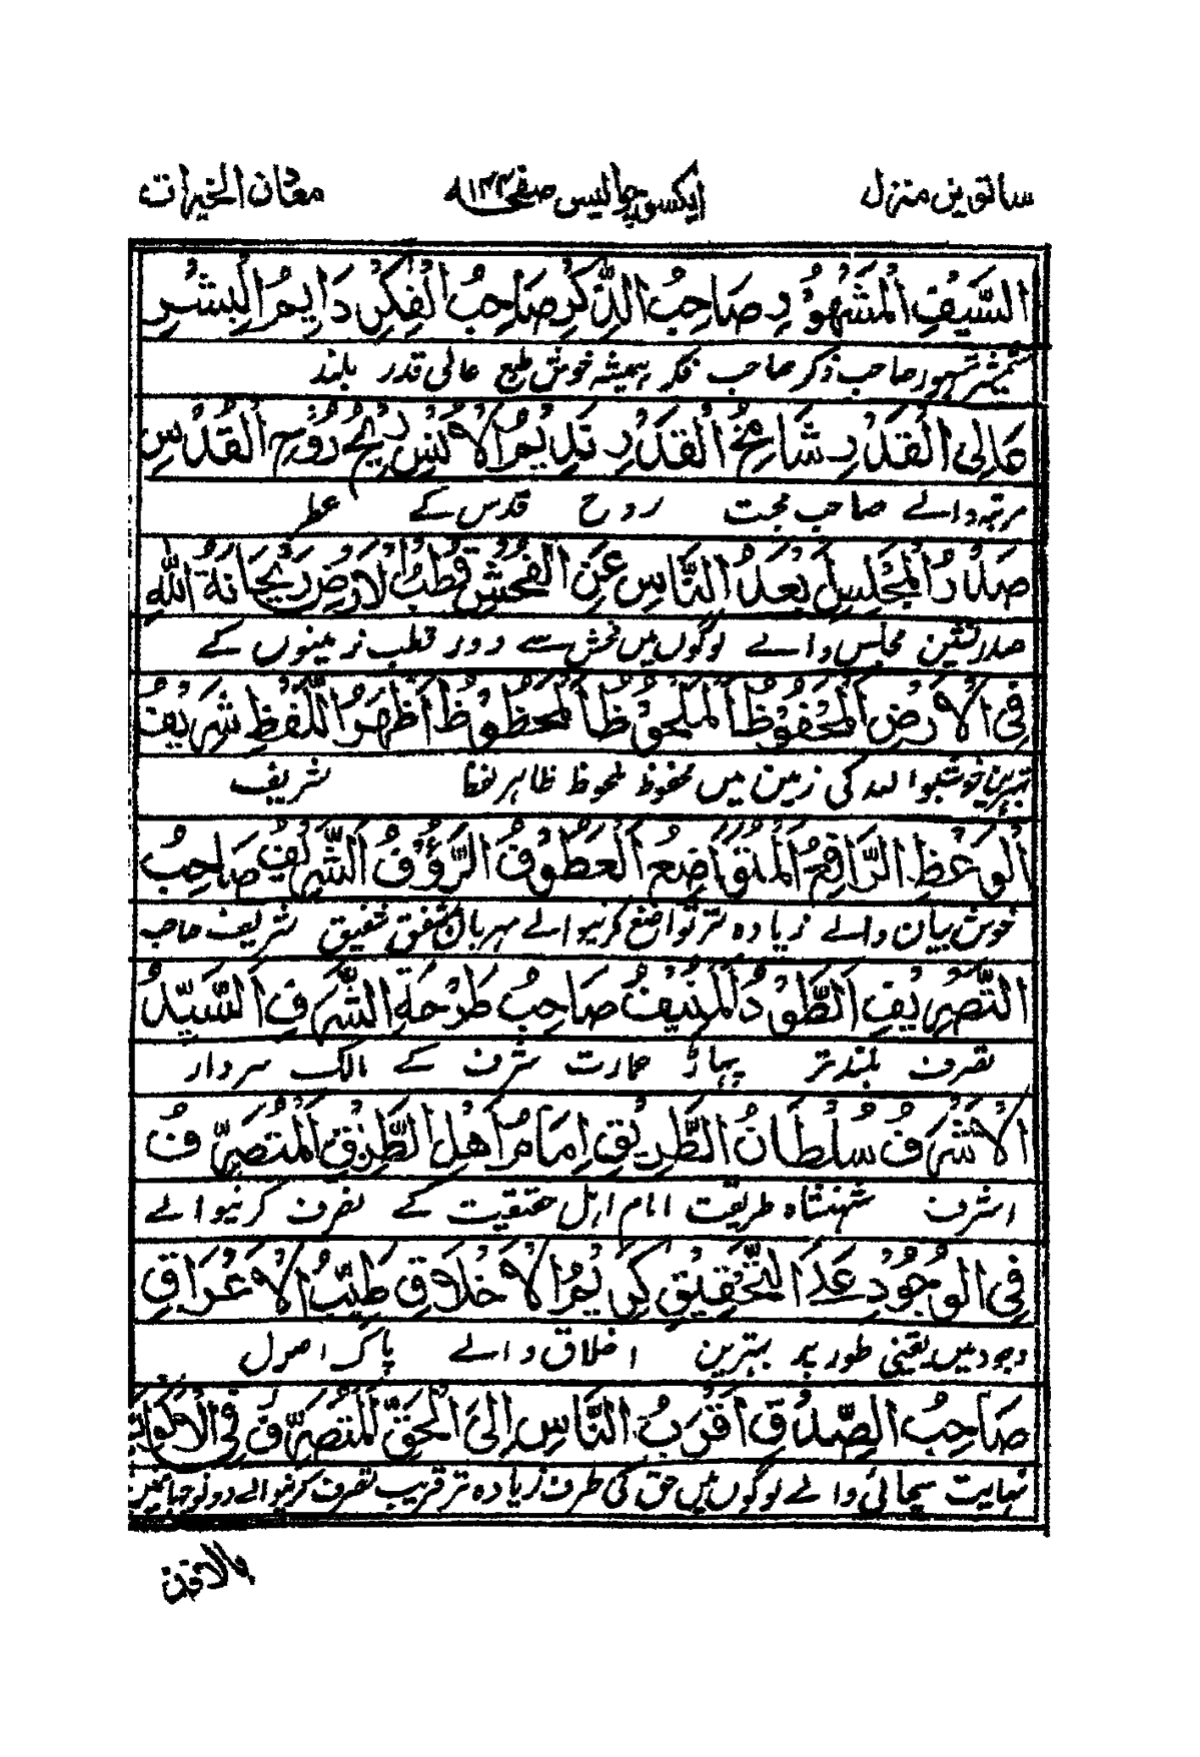 ساتویں منزل ایکسوچوالیس صفحہ ۱۴۴ معادن الخیرات
السَّيْفِ الْمَشْهُوْدِ صَاحِبُ الذِّكْرِ صَاحِبُ الْفِكْرِ دَايِمُ الْبِشْرِ
شمشیر مشہور صاحب ذکر صاحب فکر ہمیشہ خوش طبع عالی قدر بلند
عَالِى الْقَدْرِ شَامِخُ الْقَدْرِ نَدِيْمُ الْاُنْسِ رِيْحُ رُوْحِ الْقُدْسِ
مرتبہ والے صاحب محبت روح قدس کے عطر
صَدْرُ الْمَجْلِسِ بَعْدُ النَّاسِ عَنِ الْفُحْشِ قُطْبُ الْاَرْضِ رَيْحَانَةُ اللهِ
صدر نشین مجلس والے لوگوں میں فحش سے دور قطب زمینوں کے
فِى الْاَرْضِ الْمَحْفُوْظُ الْمَلْحُوْظُ الْمَحْظُوْظُ اَظْهَرُ اللَّفْظِ شَرِيْفُ
بہترین خوشبو اللہ کی زمین میں محفوظ ملحوظ ظاہر لفظ شریف
الْوَعْظِ الرَّافِعُ الْمُتَوَاضِعُ الْعَطُوْفُ الرَّؤُفُ الشَّرِيْفُ صَاحِبُ
خوش بیان والے زیادہ تر تواضع کرنیوالے مہربان مشفق شفیق شریف صاحب
التَّصْرِيْفِ الطَّوْدُ الْمُنِيْفُ صَاحِبُ طَرْحَةِ الشَّرَفِ السَّيِّدُ
تصرف بلندتر پہاڑ عمارت شرف کے مالک سردار
الْاَشْرَفُ سُلْطَانُ الطَّرِيْقِ اِمَامُ اَهْلِ الطَّرِيْقِ الْمُتَصَرِّفُ
اشرف شہنشاہ طریقت امام اہل حقیقت کے تصرف کرنیوالے
فِى الْوُجُوْدِ عَلَى التَّحْقِيْقِ كَرِيْمُ الْاَخْلَاقِ طَيِّبُ الْاَعْرَاقِ
وجود میں یقینی طور پر بہترین اخلاق والے پاک اصول
صَاحِبُ الصِّدْقِ اَقْرَبُ النَّاسِ اِلَى الْحَقِّ الْمُتَصَرِّفُ فِى الْاَكْوَانِ
نہایت سچائی والے لوگوں میں حق کی طرف زیادہ تر قریب تصرف کرنیوالے دونو جہانمیں